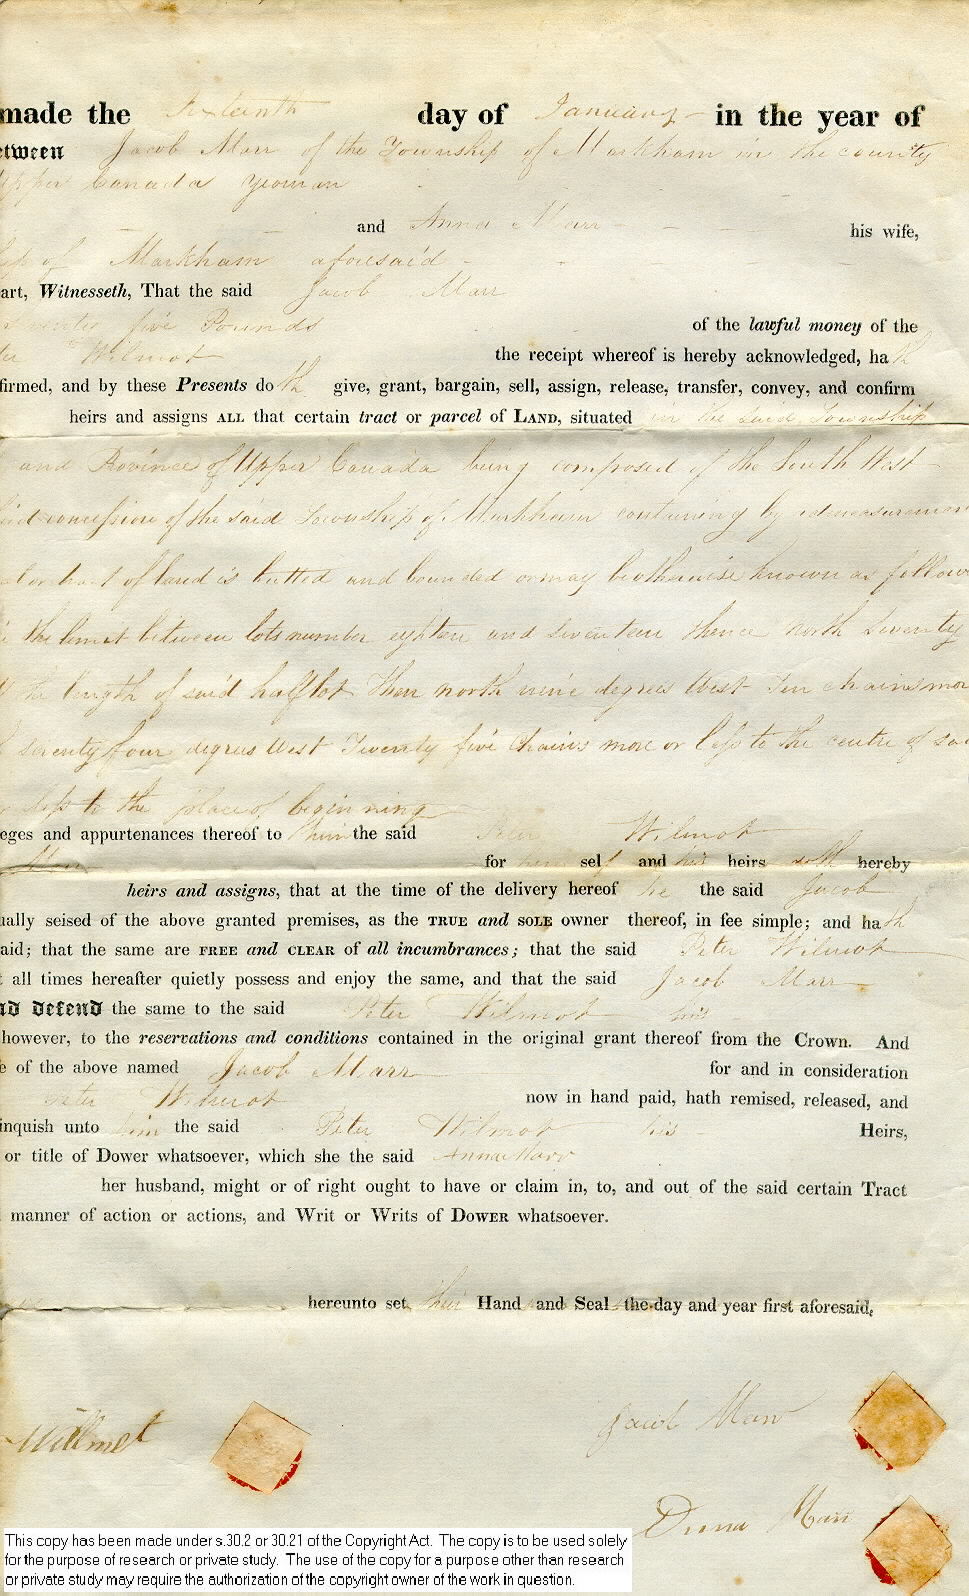 made the Sixteenth day of January in the year of
etween Jacob Marr of the Township of Markham in the county
Upper Canada yeoman
and Anna Marr his wife,
ship of Markham aforesaid
art, Witnesseth, That the said Jacob Marr
seventy five Pounds of the lawful money of the
ter Wilmot the receipt whereof is hereby acknowledged, hath
firmed, and by these Presents doth give, grant, bargain, sell, assign, release, transfer, convey, and confirm
heirs and assigns ALL that certain tract or parcel of LAND, situated in the said Township
and Province of Upper Canada being composed of the South West
concession of the said Township of Markham containing by admeasurement
of land is butted and bounded or may be otherwise known as follow
the limit between lots number eighteen and seventeen thence north seventy
the length of said half lot then north nine degrees West Ten chains mor
seventy four degrees West Twenty five Chains more or less to the centre of sa
less to the place of beginning
eges and appurtenances thereof to him the said Peter Wilmot
for him self and his heirs doth hereby
heirs and assigns, that at the time of the delivery hereof he the said Jacob
ually seised of the above granted premises, as the TRUE and SOLE owner thereof, in fee simple; and hath
aid; that the same are FREE and CLEAR of all incumbrances; that the said Peter Wilmot
t all times hereafter quietly possess and enjoy the same, and that the said Jacob Marr
nd defend the same to the said Peter Wilmot his
however, to the reservations and conditions contained in the original grant thereof from the Crown. And
e of the above named Jacob Marr for and in consideration
Peter Wilmot now in hand paid, hath remised, released, and
inquish unto him the said Peter Wilmot his Heirs,
or title of Dower whatsoever, which she the said Anna Marr
her husband, might or of right ought to have or claim in, to, and out of the said certain Tract
manner of action or actions, and Writ or Writs of DOWER whatsoever.
hereunto set their Hand and Seal the day and year first aforesaid.
Jacob Marr
Willmot
Marr
This copy has been made under s.30.2 or 30.21 of the Copyright Act. The copy is to be used solely
for the purpose of research or private study. The use of the copy for a purpose other than research
or private study may require the authorization of the copyright owner of the work in question.